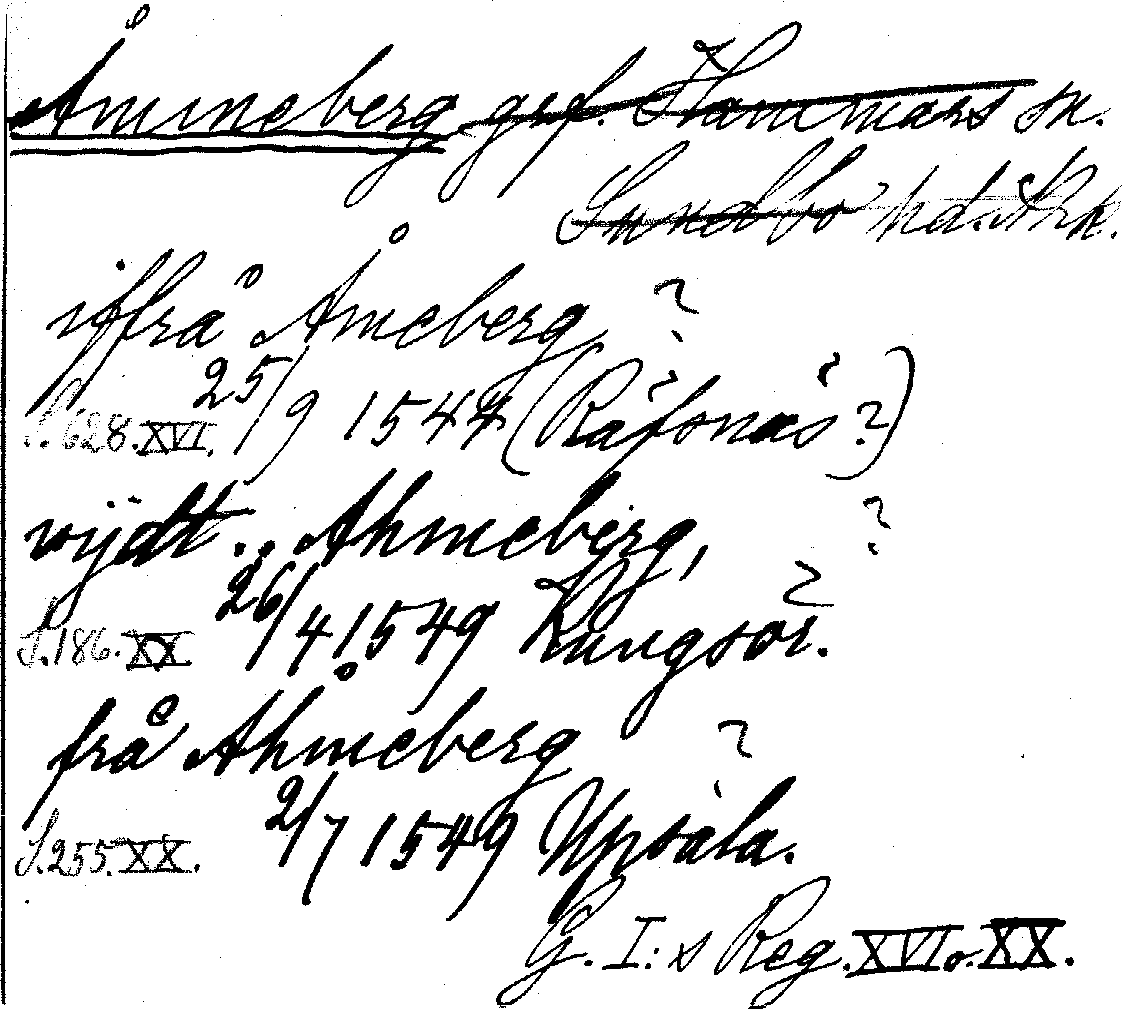 Åmmeberg grf. Hammars sn.
Sundbo hd. Örk.
iffrå Åmeberg ?
S. 628. XVI. 25/9 1544 (Räfsnäs?)
wijdt .. Åhmeberg, ?
S. 186. XX. 26/4 1549 Kungsör.
frå Åhmeberg ?
S. 255. XX. 2/7 1549 Upsala.
G. I:s Reg. XVI o. XX.